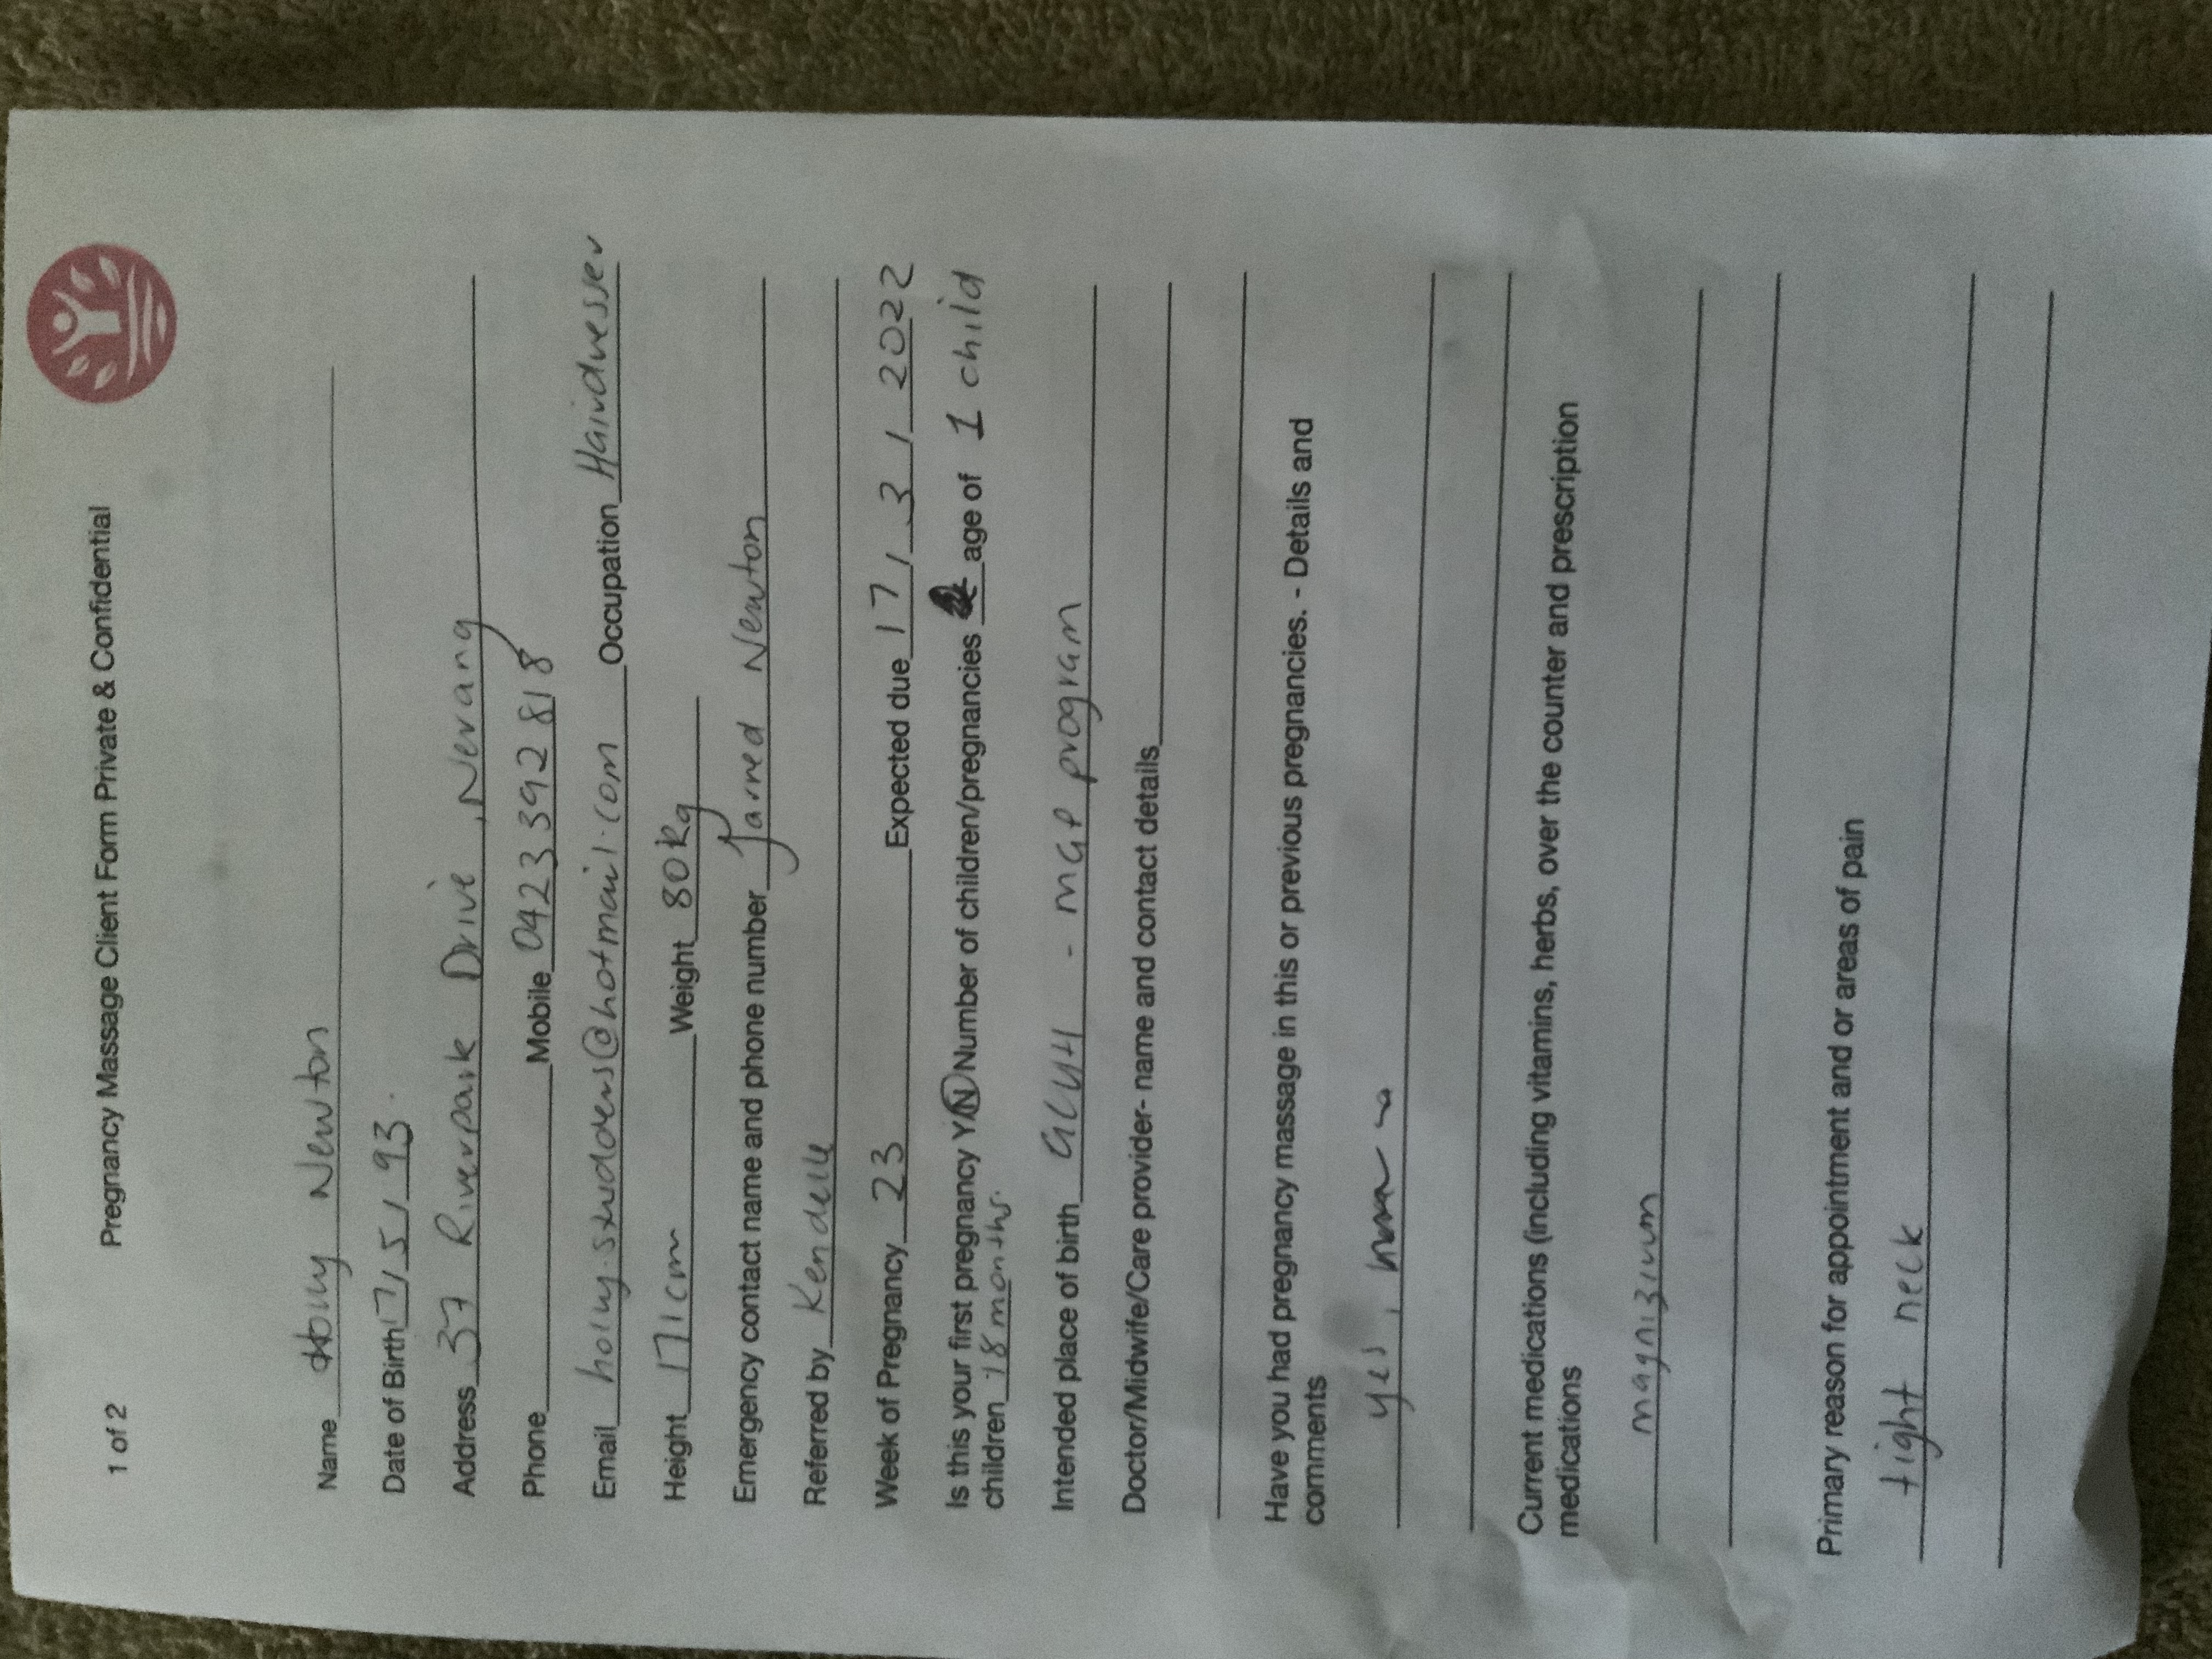 1 of 2 Pregnancy Massage Client Form Private & Confidential
Name Holly Newton
Date of Birth 17/5/93.
Address 37 Riverpark Drive, Nerang
Phone Mobile 0423 392 818
Email holly.studders@hotmail.com Occupation Hairdresser
Height 171cm Weight 80kg
Emergency contact name and phone number Jarred Newton
Referred by Kendelle
Week of Pregnancy 23 Expected due 17/3/2022
Is this your first pregnancy Y/N Number of children/pregnancies age of 1 child
children 18 months.
Intended place of birth GCUH - MGP program
Doctor/Midwife/Care provider- name and contact details
Have you had pregnancy massage in this or previous pregnancies. - Details and
comments
yes,
Current medications (including vitamins, herbs, over the counter and prescription
medications
magnizium
Primary reason for appointment and or areas of pain
tight neck